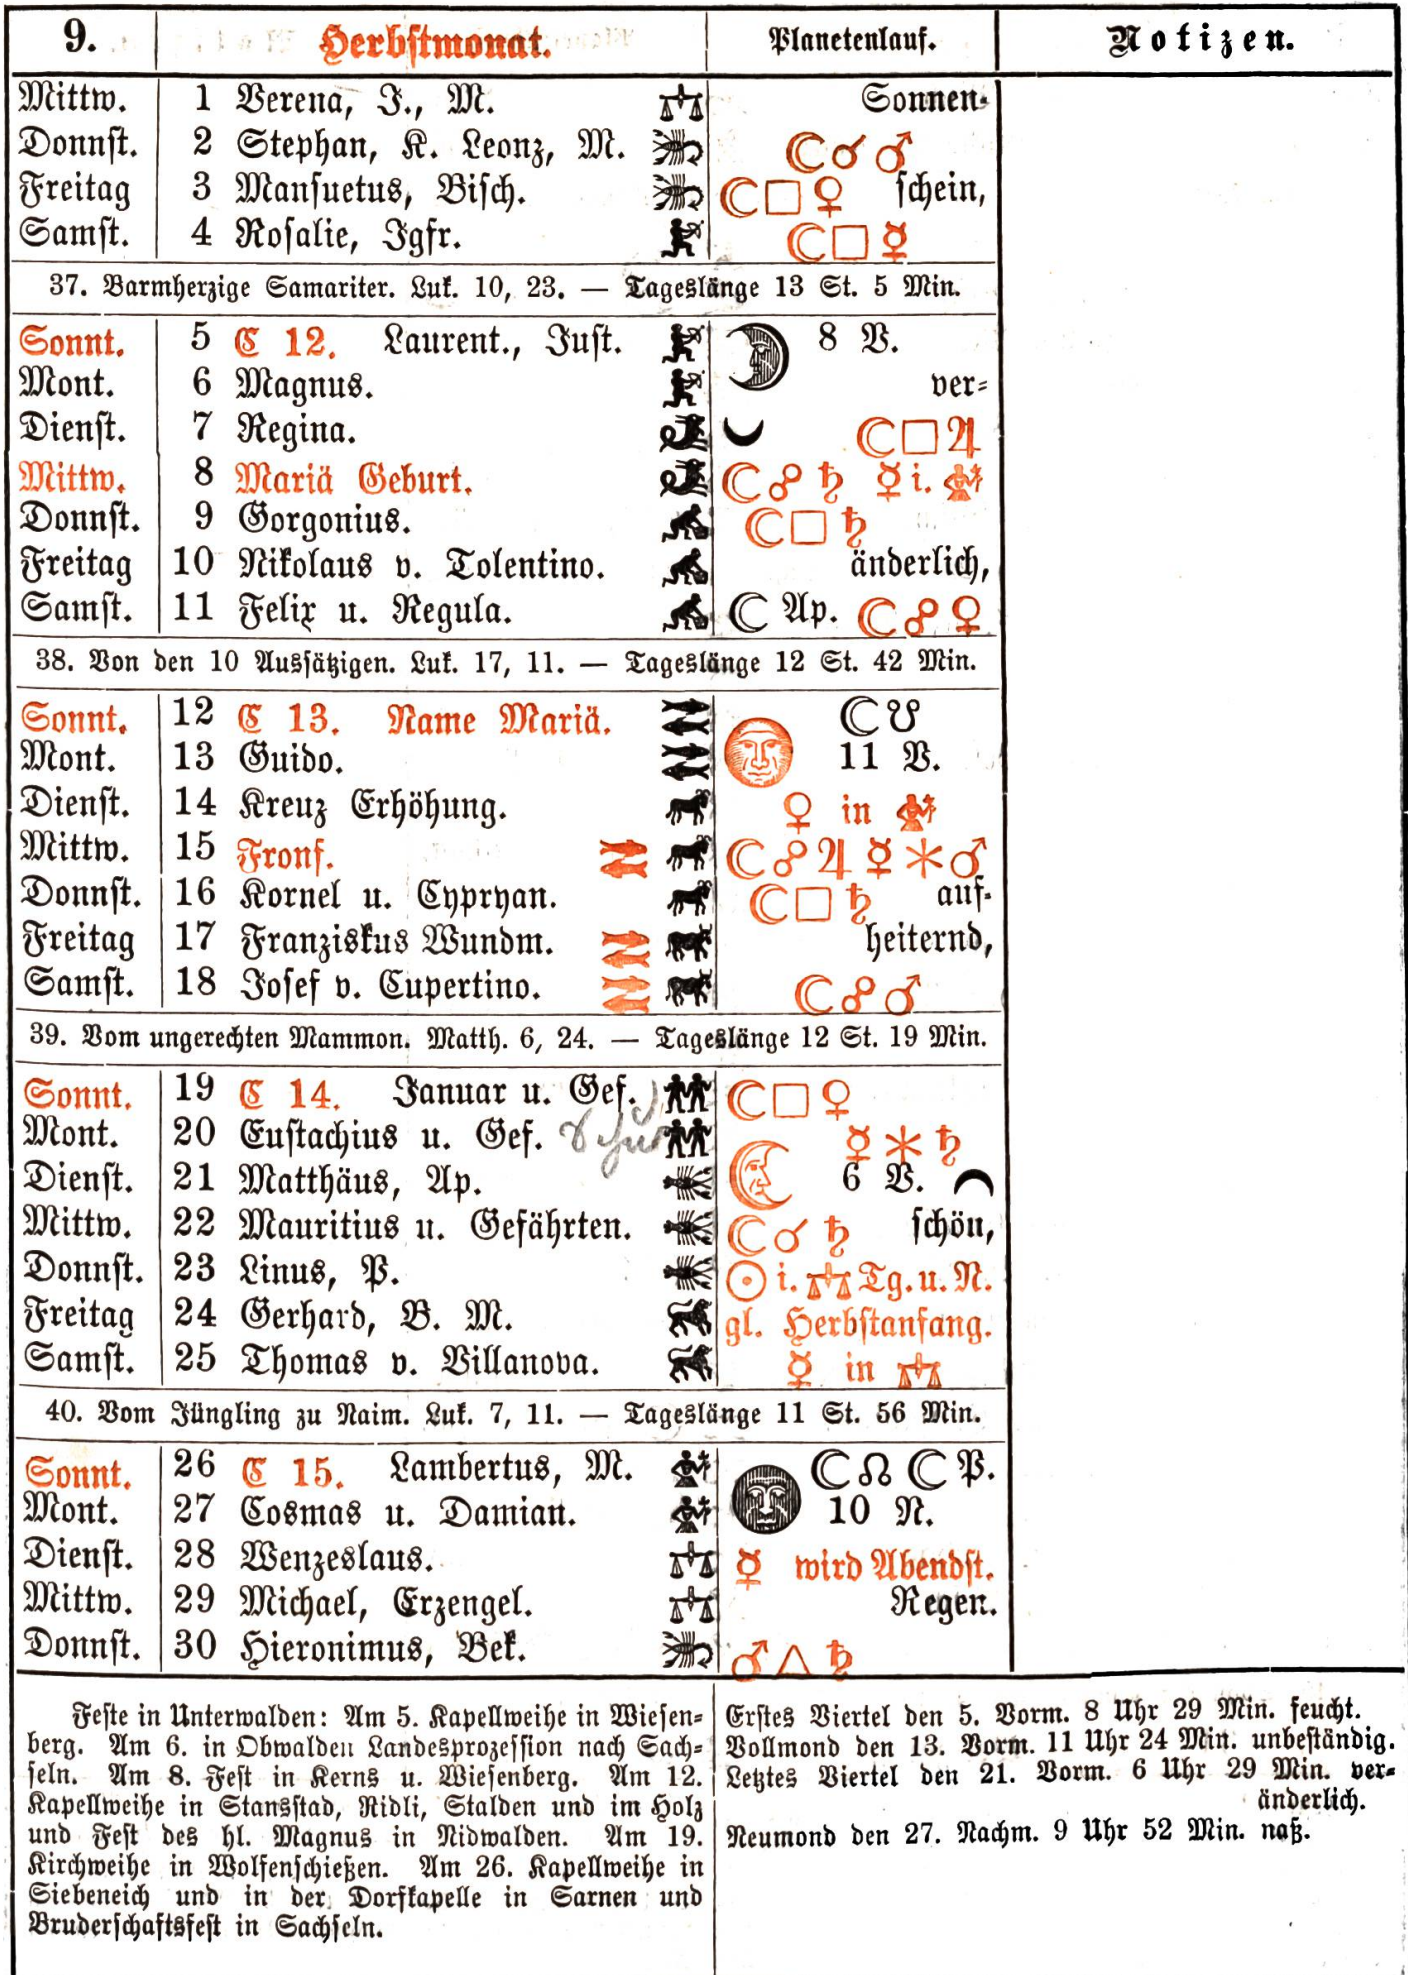 9. Herbstmonat. Planetenlauf. Notizen.
Mittw. 1 Verena, J., M. Sonnen-
Donnst. 2 Stephan, K. Leonz, M. ☾☌♂
Freitag 3 Mansuetus, Bisch. ☾□♀ schein,
Samst. 4 Rosalie, Jgfr. ☾□☿
37. Barmherzige Samariter. Luk. 10, 23. — Tageslänge 13 St. 5 Min.
Sonnt. 5 C 12. Laurent., Just. 8 V.
Mont. 6 Magnus. ver-
Dienst. 7 Regina. ☾□♃
Mittw. 8 Mariä Geburt. ☾☍♄ ☿ i. ♍
Donnst. 9 Gorgonius. ☾□♄
Freitag 10 Nikolaus v. Tolentino. änderlich,
Samst. 11 Felix u. Regula. ☾ Ap. ☾☍♀
38. Von den 10 Aussätzigen. Luk. 17, 11. — Tageslänge 12 St. 42 Min.
Sonnt. 12 C 13. Name Mariä. ☾☋
Mont. 13 Guido. 11 V.
Dienst. 14 Kreuz Erhöhung. ♀ in ♍
Mittw. 15 Fronf. ☾☍♃ ☿⚹♂
Donnst. 16 Kornel u. Cypryan. ☾□♄ auf-
Freitag 17 Franziskus Wundm. heiternd,
Samst. 18 Josef v. Cupertino. ☾☍♂
39. Vom ungerechten Mammon. Matth. 6, 24. — Tageslänge 12 St. 19 Min.
Sonnt. 19 C 14. Januar u. Gef. ☾□♀
Mont. 20 Eustachius u. Gef. ☿⚹♄
Dienst. 21 Matthäus, Ap. 6 V.
Mittw. 22 Mauritius u. Gefährten. ☾☌♄ schön,
Donnst. 23 Linus, P. ☉ i. ♎ Tg. u. N.
Freitag 24 Gerhard, B. M. gl. Herbstanfang.
Samst. 25 Thomas v. Villanova. ☿ in ♎
40. Vom Jüngling zu Naim. Luk. 7, 11. — Tageslänge 11 St. 56 Min.
Sonnt. 26 C 15. Lambertus, M. ☾☊ ☾ P.
Mont. 27 Cosmas u. Damian. 10 N.
Dienst. 28 Wenzeslaus. ☿ wird Abendst.
Mittw. 29 Michael, Erzengel. Regen.
Donnst. 30 Hieronimus, Bek. ♂△♄
Feste in Unterwalden: Am 5. Kapellweihe in Wiesen-
berg. Am 6. in Obwalden Landesprozession nach Sach-
seln. Am 8. Fest in Kerns u. Wiesenberg. Am 12.
Kapellweihe in Stansstad, Ridli, Stalden und im Holz
und Fest des hl. Magnus in Nidwalden. Am 19.
Kirchweihe in Wolfenschießen. Am 26. Kapellweihe in
Siebeneich und in der Dorfkapelle in Sarnen und
Bruderschaftsfest in Sachseln.
Erstes Viertel den 5. Vorm. 8 Uhr 29 Min. feucht.
Vollmond den 13. Vorm. 11 Uhr 24 Min. unbeständig.
Letztes Viertel den 21. Vorm. 6 Uhr 29 Min. ver-
änderlich.
Neumond den 27. Nachm. 9 Uhr 52 Min. naß.